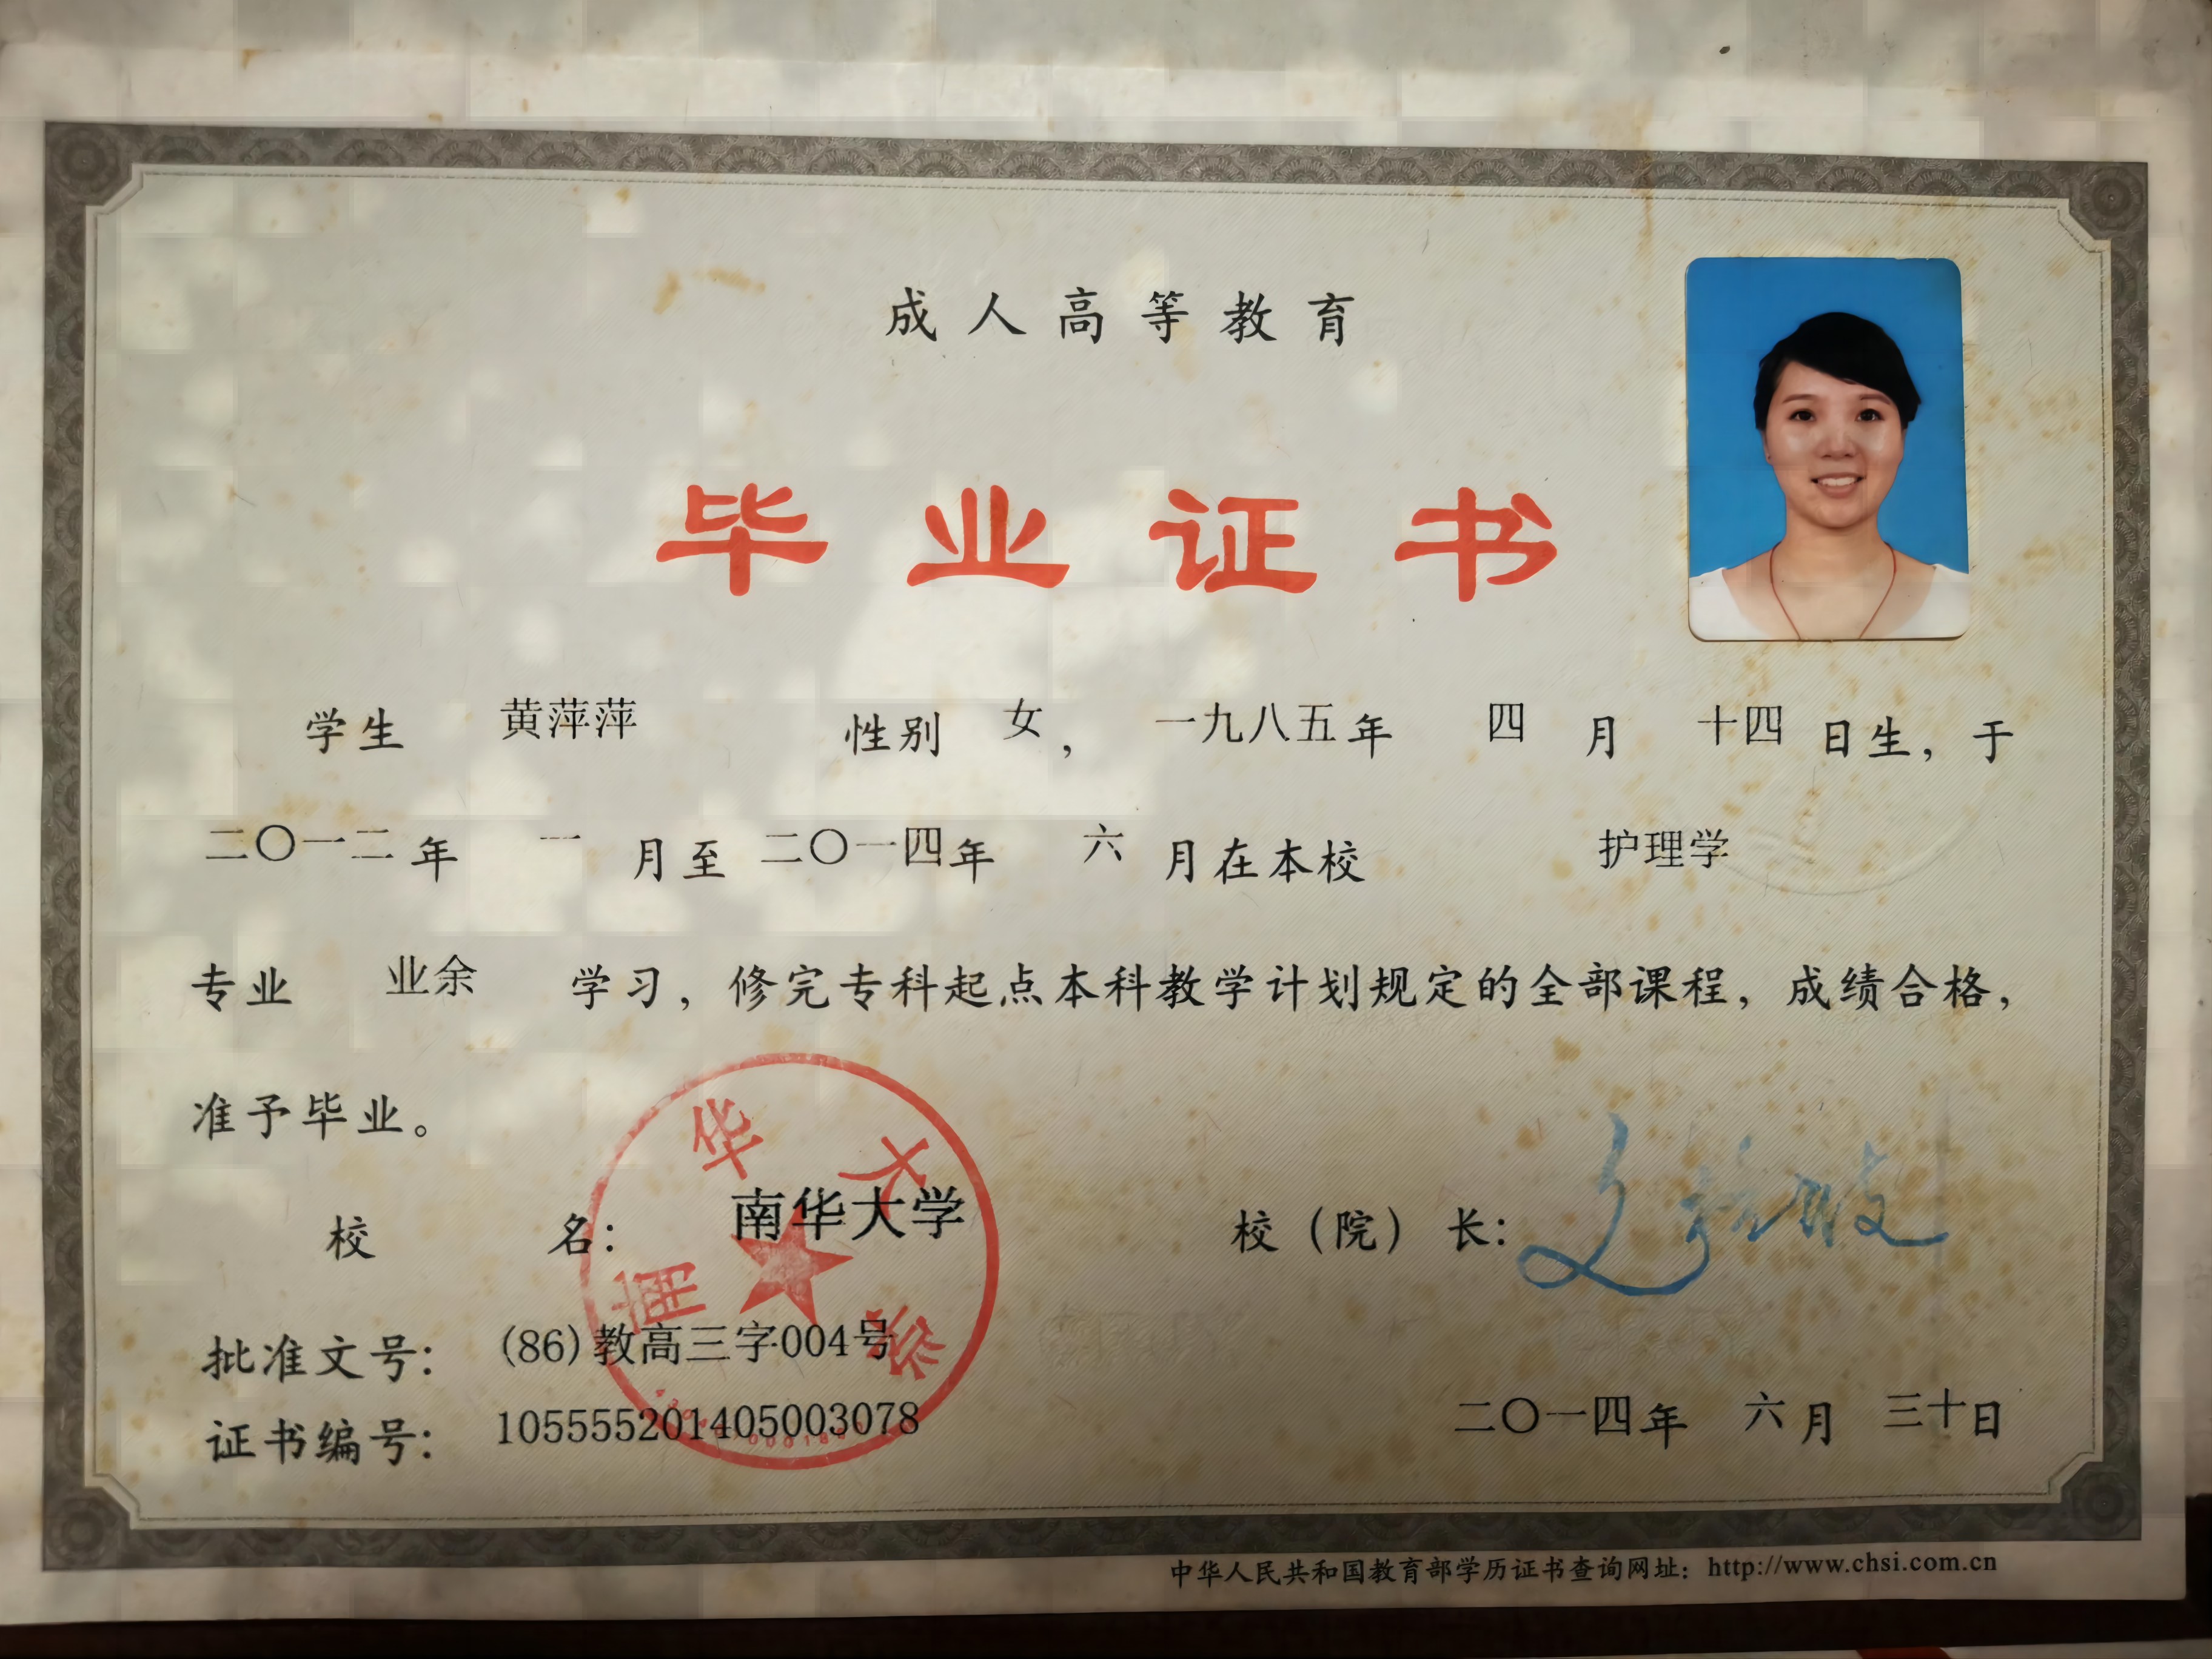 成人高等教育
毕业证书
学生 黄萍萍 性别 女， 一九八五年 四 月 十四 日生，于
二〇一二年 一 月至 二〇一四年 六 月在本校 护理学
专业 业余 学习，修完专科起点本科教学计划规定的全部课程，成绩合格，
准予毕业。
华大
校 名： 南华大学 校（院）长：
南
学
批准文号： (86)教高三字004号
证书编号： 105555201405003078 二〇一四年 六月 三十日
中华人民共和国教育部学历证书查询网址：http://www.chsi.com.cn